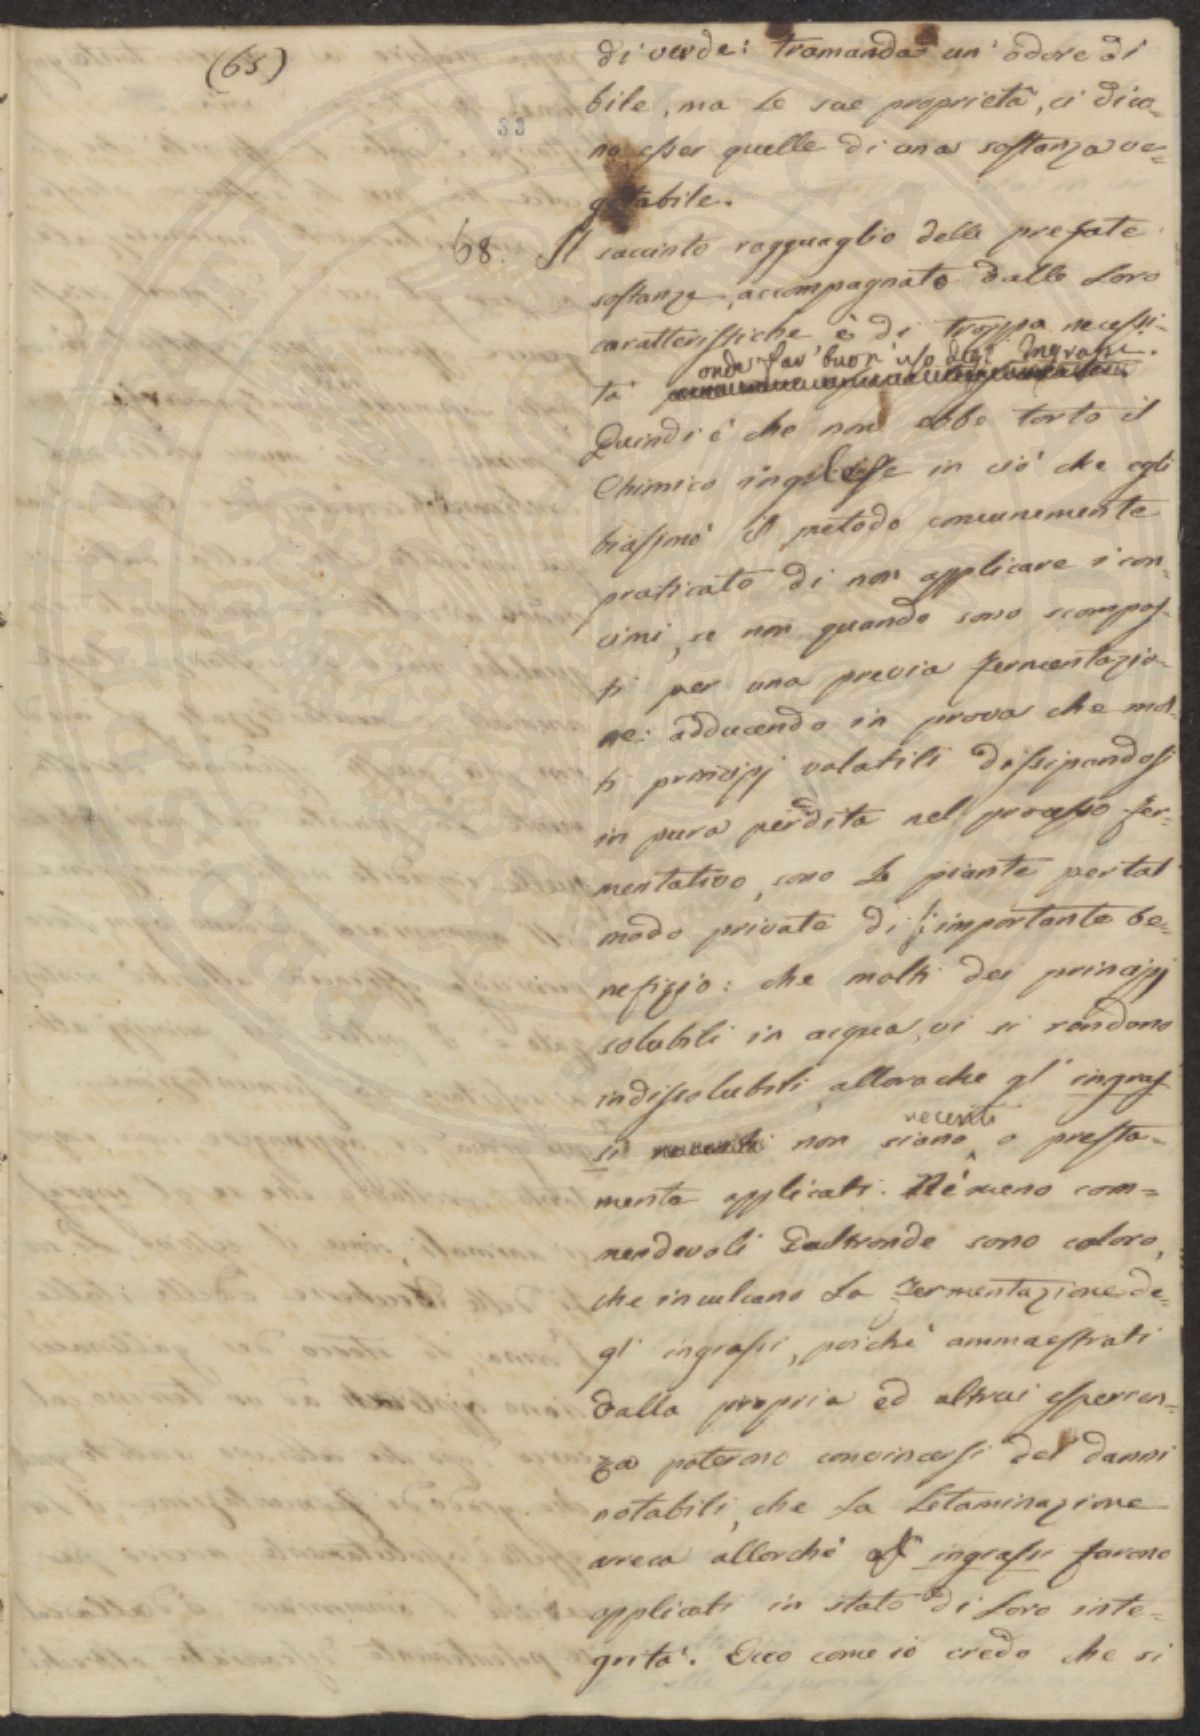 (65)
33
di verde: Tramanda un' odore di
bile, ma Le sue proprietà, ci dico=
no esser quelle di una sostanza ve=
getabile.
68. Il succinto ragguaglio delle prefate
sostanze, accompagnato dalle Loro
caratteristiche è di troppa necessi-
onde far buon' uso degl' Ingrassi.
tà
Quindi è che non ebbe torto il
Chimico inglese in ciò che egli
biasimò il metodo comunemente
praticato di non applicare i con-
cimi, se non quando sono scompos-
ti per una previa fermentazio-
ne: adducendo in prova che mol-
ti principj volatili dissipandosi
in pura perdita nel processo fer-
mentativo, sono Le piante per tal
modo private di sì importante be=
nefizio: che molti dei principj
solubili in acqua, vi si rendono
indissolubili, allorache gl' ingras-
recenti
si non siano, o presta-
mente applicati. Nè meno com=
mendevoli d'altronde sono coloro,
che inculcano La Fermentazione de=
gl' ingrassi, poichè ammaestrati
dalla propria ed altrui esperien=
za poterono convincersi dei danni
notabili, che La Letaminazione
areca allorchè gl' ingrassi furono
applicati in stato di Loro inte=
grità. Ecco come io credo che si